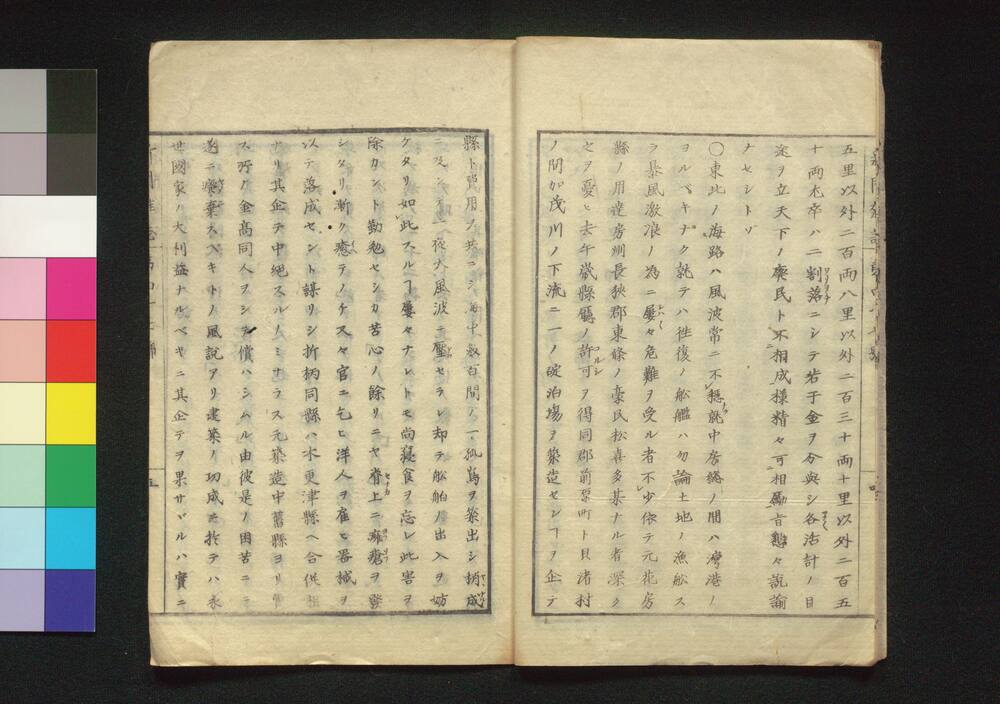 五里以外二百両八里以外二百三十両十里以外二百五
十両尤卒ハ二割落ニシテ若干金ヲ分與シ各活計ノ目
途ヲ立天下ノ廃民ト不相成様精々可相勵旨懇々説諭
ナセシトゾ
〇東北ノ海路ハ風波常ニ不穏就中房總ノ間ハ灣港ノ
ヨルベキナク就テハ徃復ノ舩艦ハ勿論土地ノ漁舩ス
ラ暴風激浪ノ為ニ屢々危難ヲ受ル者不少依テ元花房
縣ノ用達房州長狹郡東條ノ豪民松喜多某ナル者深ク
之ヲ憂ヒ去午歳縣廳ノ許可ヲ得同郡前原町ト貝渚村
ノ間加茂川ノ下流ニ一ノ碇泊場ヲ築造センヿヲ企テ
縣ト費用ヲ共ニシ海中数百間ノ一孤島ヲ築出シ稍成
ニ及ンテ一夜大風波ニ壓セラレ却テ舩舶ノ出入ヲ妨
ケタリ如此スルヿ屢々ナレトモ尚寝食ヲ忘レ此害ヲ
除カント勤勉セシカ苦心ノ餘リニヤ脊上ニ癰瘡ヲ發
シタリ漸ク癒テノチスヤ官ニ乞ヒ洋人ヲ雇ヒ器械ヲ
以テ落成セント謀リシ折柄同縣ハ木更津縣ヘ合併相
ナリ其企テ中絶スルノミナラス元築造中舊縣ヨリ
ス所ノ金高同人ヲシテ償ハシムル由彼是ノ困苦ニテ
遂ニ廢棄スベキトノ風説アリ建築ノ功成ニ於テハ永
世國家ノ大利益ナルベキニ其企テヲ果サヾルハ實ニ